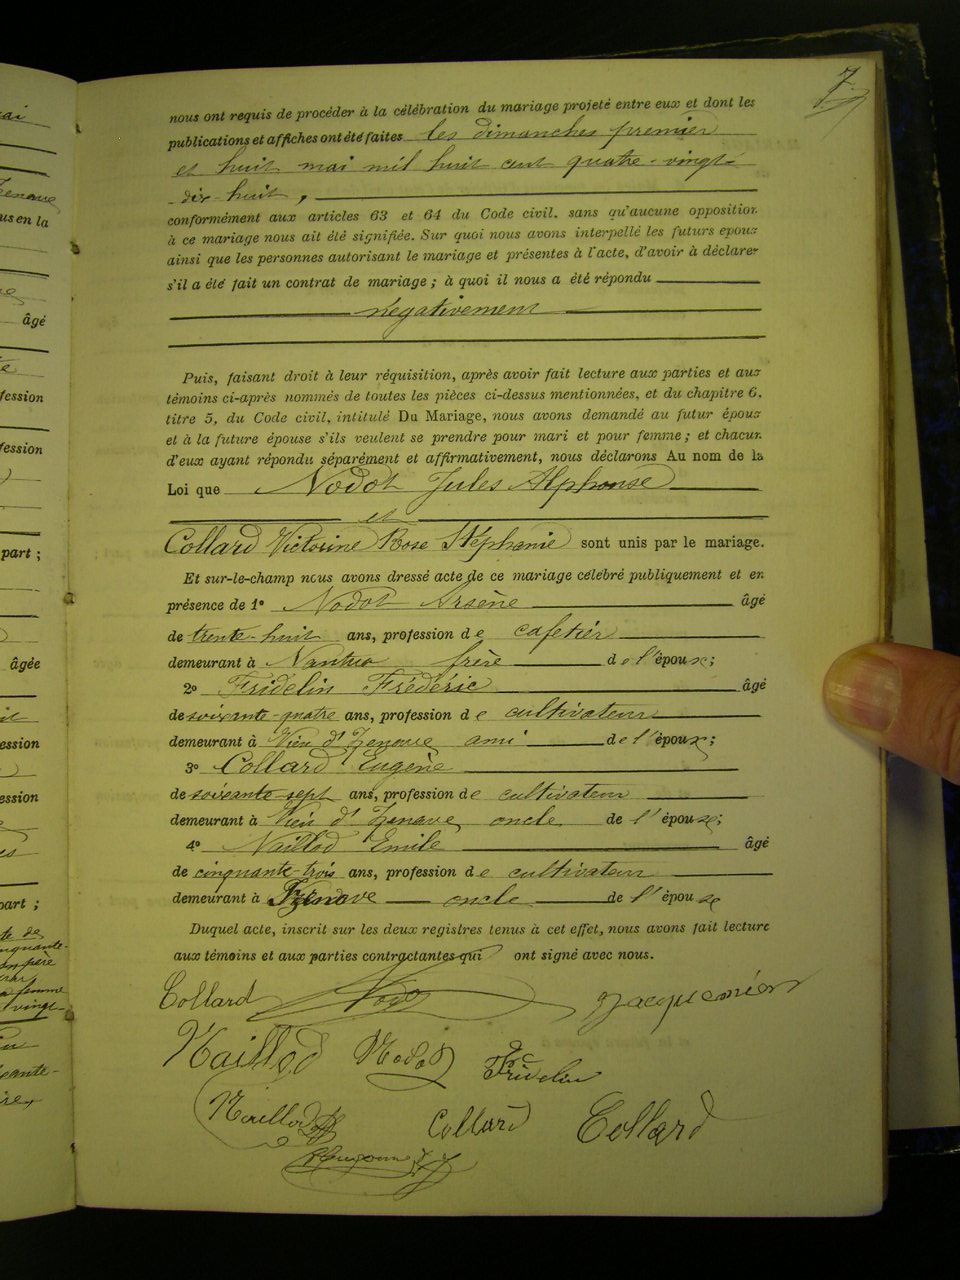 7
nous ont requis de procéder à la célébration du mariage projeté entre eux et dont les
publications et affiches ont été faites les dimanches premier
et huit mai mil huit cent quatre-vingt-
dix-huit,
conformément aux articles 63 et 64 du Code civil, sans qu'aucune opposition
à ce mariage nous ait été signifiée. Sur quoi nous avons interpellé les futurs epoux
ainsi que les personnes autorisant le mariage et présentes à l'acte, d'avoir à déclarer
s'il a été fait un contrat de mariage ; à quoi il nous a été répondu
négativement
Puis, faisant droit à leur réquisition, après avoir fait lecture aux parties et aux
témoins ci-après nommés de toutes les pièces ci-dessus mentionnées, et du chapitre 6,
titre 5, du Code civil, intitulé Du Mariage, nous avons demandé au futur époux
et à la future épouse s'ils veulent se prendre pour mari et pour femme ; et chacun
d'eux ayant répondu séparément et affirmativement, nous déclarons Au nom de la
Loi que Nodot Jules Alphonse
et
Collard Victorine Rose Stéphanie sont unis par le mariage.
Et sur-le-champ nous avons dressé acte de ce mariage célébré publiquement et en
présence de 1° Nodot Arsène âgé
de trente-huit ans, profession de cafetier
demeurant à Nantua frère de l'époux;
2° Fridelin Frédéric âgé
de soixante-quatre ans, profession de cultivateur
demeurant à Vieu d'Izenave ami de l'époux;
3° Collard Eugène
de soixante-sept ans, profession de cultivateur
demeurant à Vieu d'Izenave, oncle de l'épouse;
4° Naillod Emile âgé
de cinquante-trois ans, profession de cultivateur
demeurant à Izenave oncle de l'épouse
Duquel acte, inscrit sur les deux registres tenus à cet effet, nous avons fait lecture
aux témoins et aux parties contractantes qui ont signé avec nous.
Collard Nodot Jacquemier
Naillod Nodot Fridelin
Naillod Collard Collard